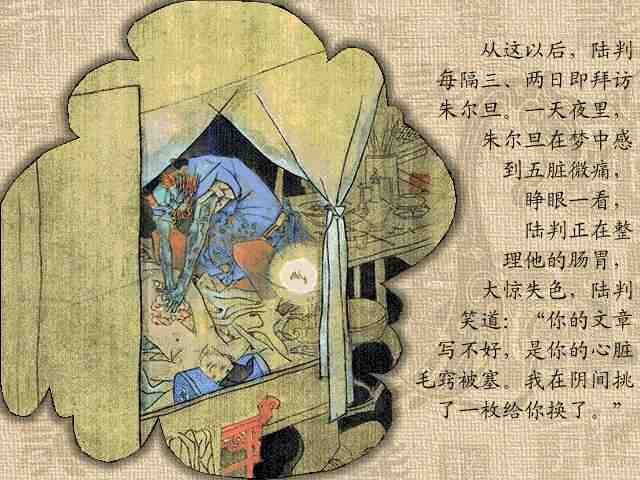 从这以后，陆判
每隔三、两日即拜访
朱尔旦。一天夜里，
朱尔旦在梦中感
到五脏微痛，
睁眼一看，
陆判正在整
理他的肠胃，
大惊失色，陆判
笑道：“你的文章
写不好，是你的心脏
毛窍被塞。我在阴间挑
了一枚给你换了。”